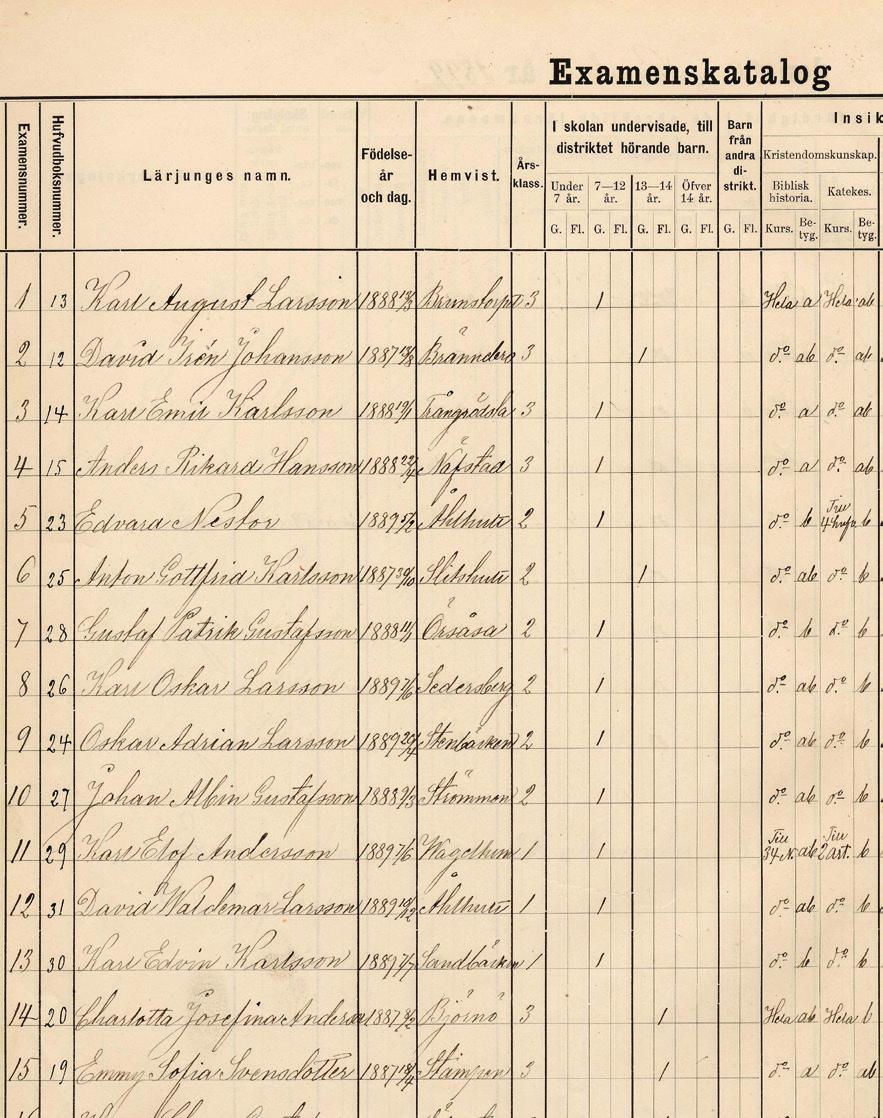 Examenskatalog
Examensnummer. Hufvudboksnummer. Lärjunges namn. Födelseår och dag. Hemvist. Årsklass. I skolan undervisade, till distriktet hörande barn. Barn från andra distrikt. Insik
Under 7 år. 7—12 år. 13—14 år. Öfver 14 år. Kristendomskunskap.
Biblisk historia. Katekes.
G. Fl. G. Fl. G. Fl. G. Fl. G. Fl. Kurs. Betyg. Kurs. Betyg.
1 13 Karl August Larsson 1888 3 1 Hela a Hela ab
2 12 David Irén Johansson 1887 3 1 d:o ab d:o ab
3 14 Karl Emil Karlsson 1888 3 1 d:o a d:o ab
4 15 Anders Rikard Hansson 1888 22/4 Näfstad 3 1 d:o a d:o ab
5 23 Edvard Nestor 1889 5/2 Åhlhult 2 1 d:o b Till 4 b
6 25 Anton Gottfrid Karlsson 1887 30/10 Slitshult 2 1 d:o ab d:o b
7 28 Gustaf Patrik Gustafsson 1888 Örsåsa 2 1 d:o b d:o b
8 26 Karl Oskar Larsson 1889 Sedersberg 2 1 d:o ab d:o b
9 24 Oskar Adrian Larsson 1889 Stenbäcken 2 1 d:o ab d:o b
10 27 Johan Albin Gustafsson 1888 9/3 Strömmen 2 1 d:o ab d:o b
11 29 Karl Elof Andersson 1889 7/6 Wagelhem 1 1 Till 34 N. ab Till 2 art. b
12 31 David Waldemar Larsson 1889 19/12 Åhlhult 1 1 d:o ab d:o b
13 30 Karl Edvin Karlsson 1889 7/7 Sandbäcken 1 1 d:o b d:o b
14 20 Charlotta Josefina Anders 1887 Björnö 3 1 Hela ab Hela b
15 19 Emmy Sofia Svensdotter 1887 Stampen 3 1 d:o a d:o ab